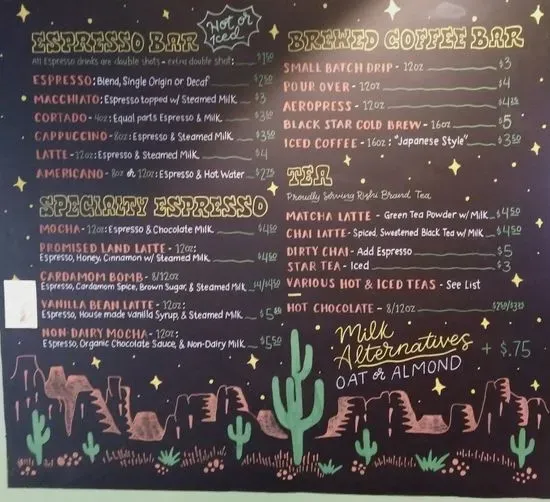 ESPRESSO BAR
Hot or Iced
All Espresso drinks are double shots - extra double shot: $1.50
ESPRESSO: Blend, Single Origin or Decaf $2.50
MACCHIATO: Espresso topped w/ Steamed Milk $3
CORTADO - 4oz: Equal parts Espresso & Milk $3.50
CAPPUCCINO - 8oz: Espresso & Steamed Milk $3.50
LATTE - 12oz: Espresso & Steamed Milk $4
AMERICANO - 8oz or 12oz: Espresso & Hot Water $2.75
SPECIALTY ESPRESSO
MOCHA - 12oz: Espresso & Chocolate Milk $4.50
PROMISED LAND LATTE - 12oz:
Espresso, Honey, Cinnamon w/ Steamed Milk $4.50
CARDAMOM BOMB - 8/12oz
Espresso, Cardamom Spice, Brown Sugar, & Steamed Milk $4/$4.50
VANILLA BEAN LATTE - 12oz:
Espresso, House made Vanilla Syrup, & Steamed Milk
NON-DAIRY MOCHA - 12oz:
Espresso, Organic Chocolate Sauce, & Non-Dairy Milk $5.50
BREWED COFFEE BAR
SMALL BATCH DRIP - 12oz $3
POUR OVER - 12oz $4
AEROPRESS - 12oz
BLACK STAR COLD BREW - 16oz $5
ICED COFFEE - 16oz: "Japanese Style" $3.50
TEA
Proudly Serving Rishi Brand Tea
MATCHA LATTE - Green Tea Powder w/ Milk $4.50
CHAI LATTE - Spiced, Sweetened Black Tea w/ Milk $4.50
DIRTY CHAI - Add Espresso $5
STAR TEA - Iced $3
VARIOUS HOT & ICED TEAS - See List
HOT CHOCOLATE - 8/12oz
Milk
Alternatives + $.75
OAT or ALMOND